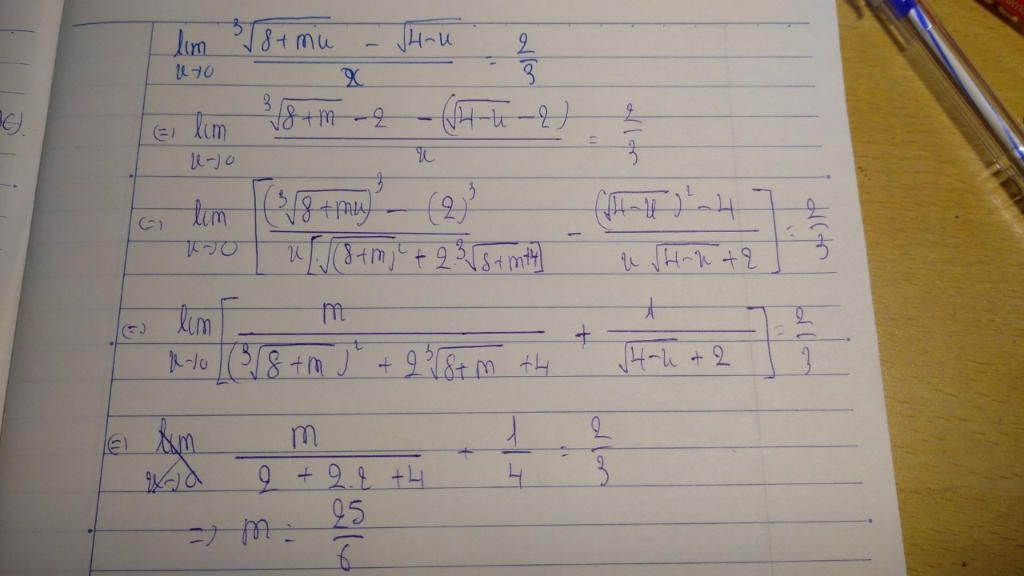 lim_{x→0} (∛(8+mx) - √(4-x))/x = 2/3
(=) lim_{x→0} (∛(8+m) - 2 - (√(4-x) - 2))/x = 2/3
(=) lim_{x→0} [((∛(8+mx))³ - (2)³)/(x[√(8+m)² + 2.∛(8+m)+4]) - ((√(4-x))² - 4)/(x √(4-x) + 2)] = 2/3
(=) lim_{x→0} [m/((∛(8+m))² + 2∛(8+m) + 4) + 1/(√(4-x) + 2)] = 2/3
(=) m/(2 + 2.2 + 4) + 1/4 = 2/3
=) m = 25/6